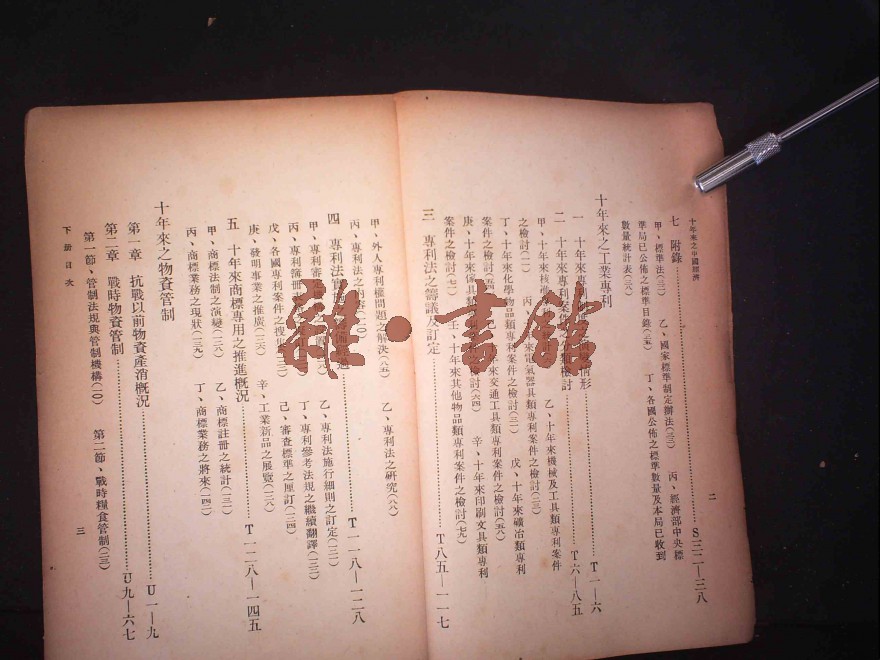 十年來之中國經濟
二
七 附錄 S三二—三八
甲、標準法(三二) 乙、國家標準制定辦法(三三) 丙、經濟部中央標
準局已公佈之標準目錄(三五) 丁、各國公佈之標準數量及本局已收到
數量統計表(三八)
十年來之工業專利
一 十年來專 情形 T一—六
二 十年來專利案 類檢討 T六—八五
甲、十年來核 乙、十年來機械及工具類專利案件
之檢討(一一) 丙、 來電氣器具類專利案件之檢討(三二)
丁、十年來化學物品類專利案件之檢討(三一) 戊、十年來礦冶類專利
案件之檢討(五 來交通工具類專利案件之檢討(五八)
庚、十年來傢具類專 檢討(六四) 辛、十年來印刷文具類專利
案件之檢討(七二) 壬、十年來其他物品類專利案件之檢討(七九)
三 專利法之籌議及訂定 T八五—一一七
甲、外人專利權問題之解決(八五) 乙、專利法之研究(八八)
丙、專利法之內容
四 專利法 T一一八—一二八
甲、專利審 乙、專利法施行細則之訂定
丙、專利簿冊 丁、專利參考法規之繼續翻譯
戊、各國專利案件之搜集 己、審查標準之厘訂
庚、發明事業之推廣 辛、工業新品之展覽
五 十年來商標專用之推進概況 T一二八—一四五
甲、商標法制之演變 乙、商標註冊之統計
丙、商標業務之現狀(一三九) 丁、商標業務之將來(一四二)
十年來之物資管制
第一章 抗戰以前物資產消概況 U一—九
第二章 戰時物資管制 U九—六七
第一節、管制法規與管制機構(一〇) 第二節、戰時糧食管制
下冊目次
三
雜·書館